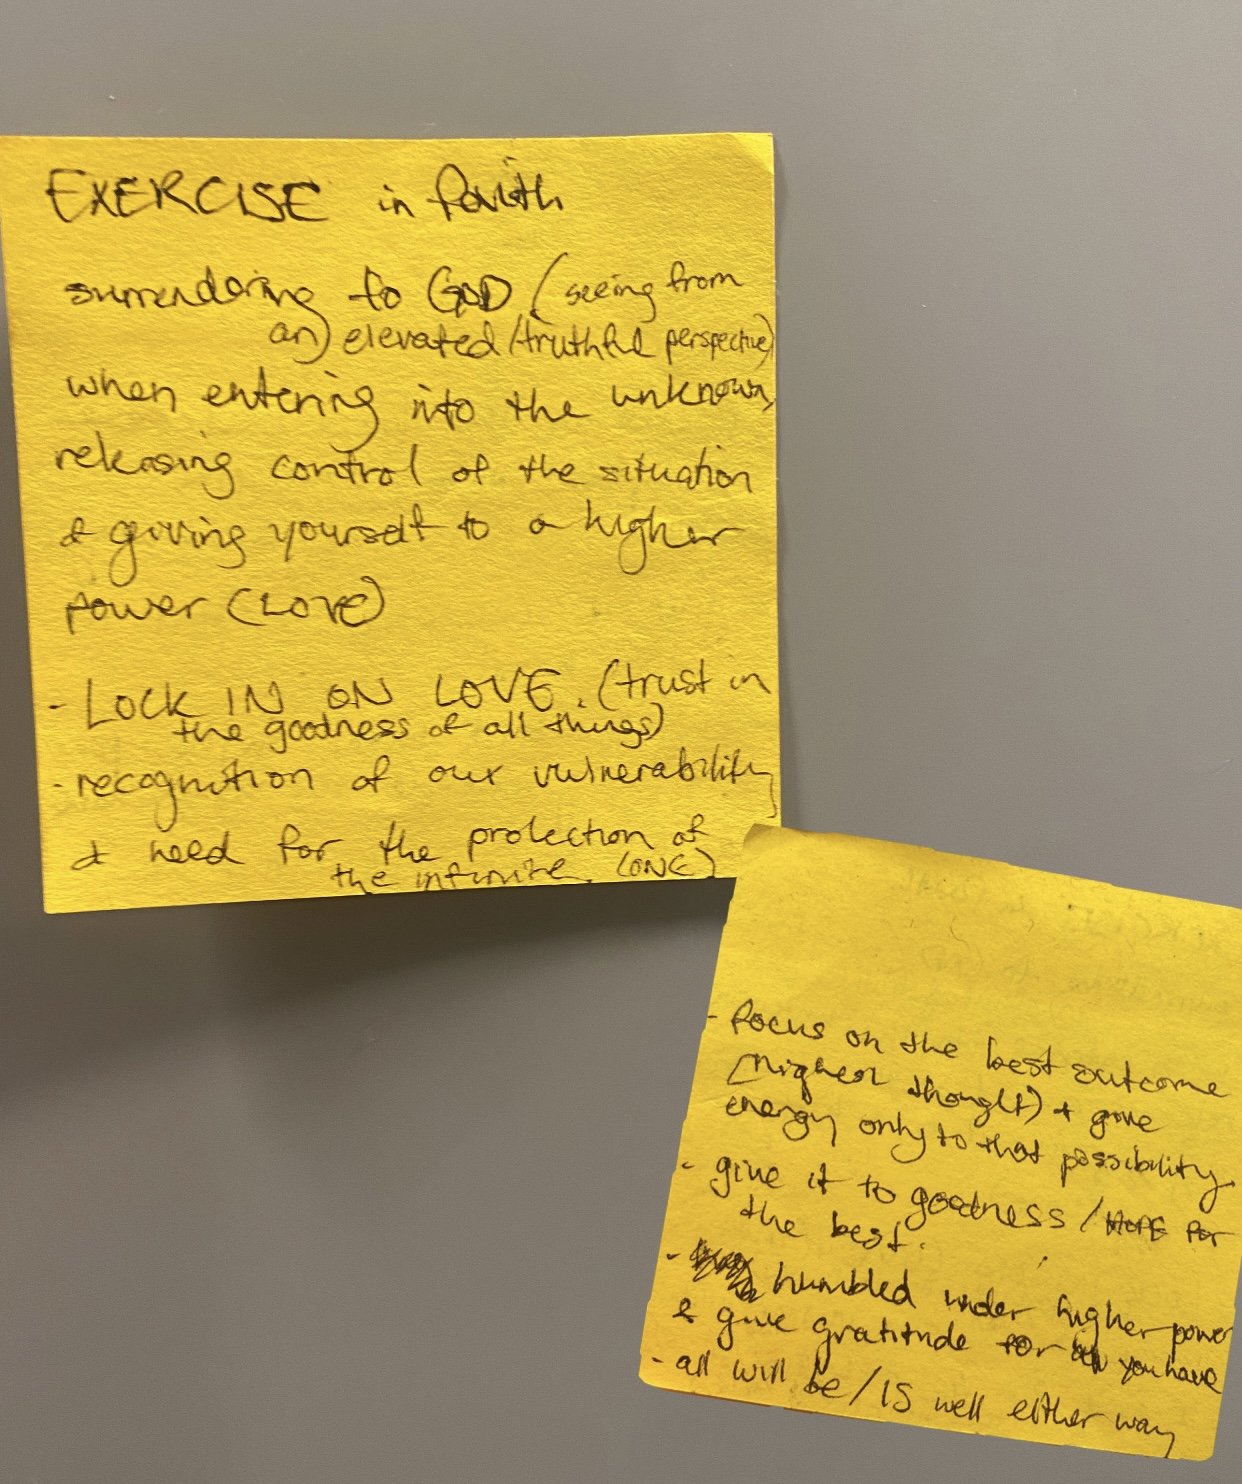 EXERCISE in faith
surrendering to GOD (seeing from
an) elevated/truthful perspective)
when entering into the unknown,
releasing control of the situation
& giving yourself to a higher
power (LOVE)
- LOCK IN ON LOVE. (trust in
the goodness of all things)
- recognition of our vulnerability
& need for the protection of
the infinite. (ONE)
- focus on the best outcome
(highest thought) + give
energy only to that possibility.
- give it to goodness / HOPE for
the best.
- humbled under higher power
& give gratitude for all you have
- all will be/IS well either way